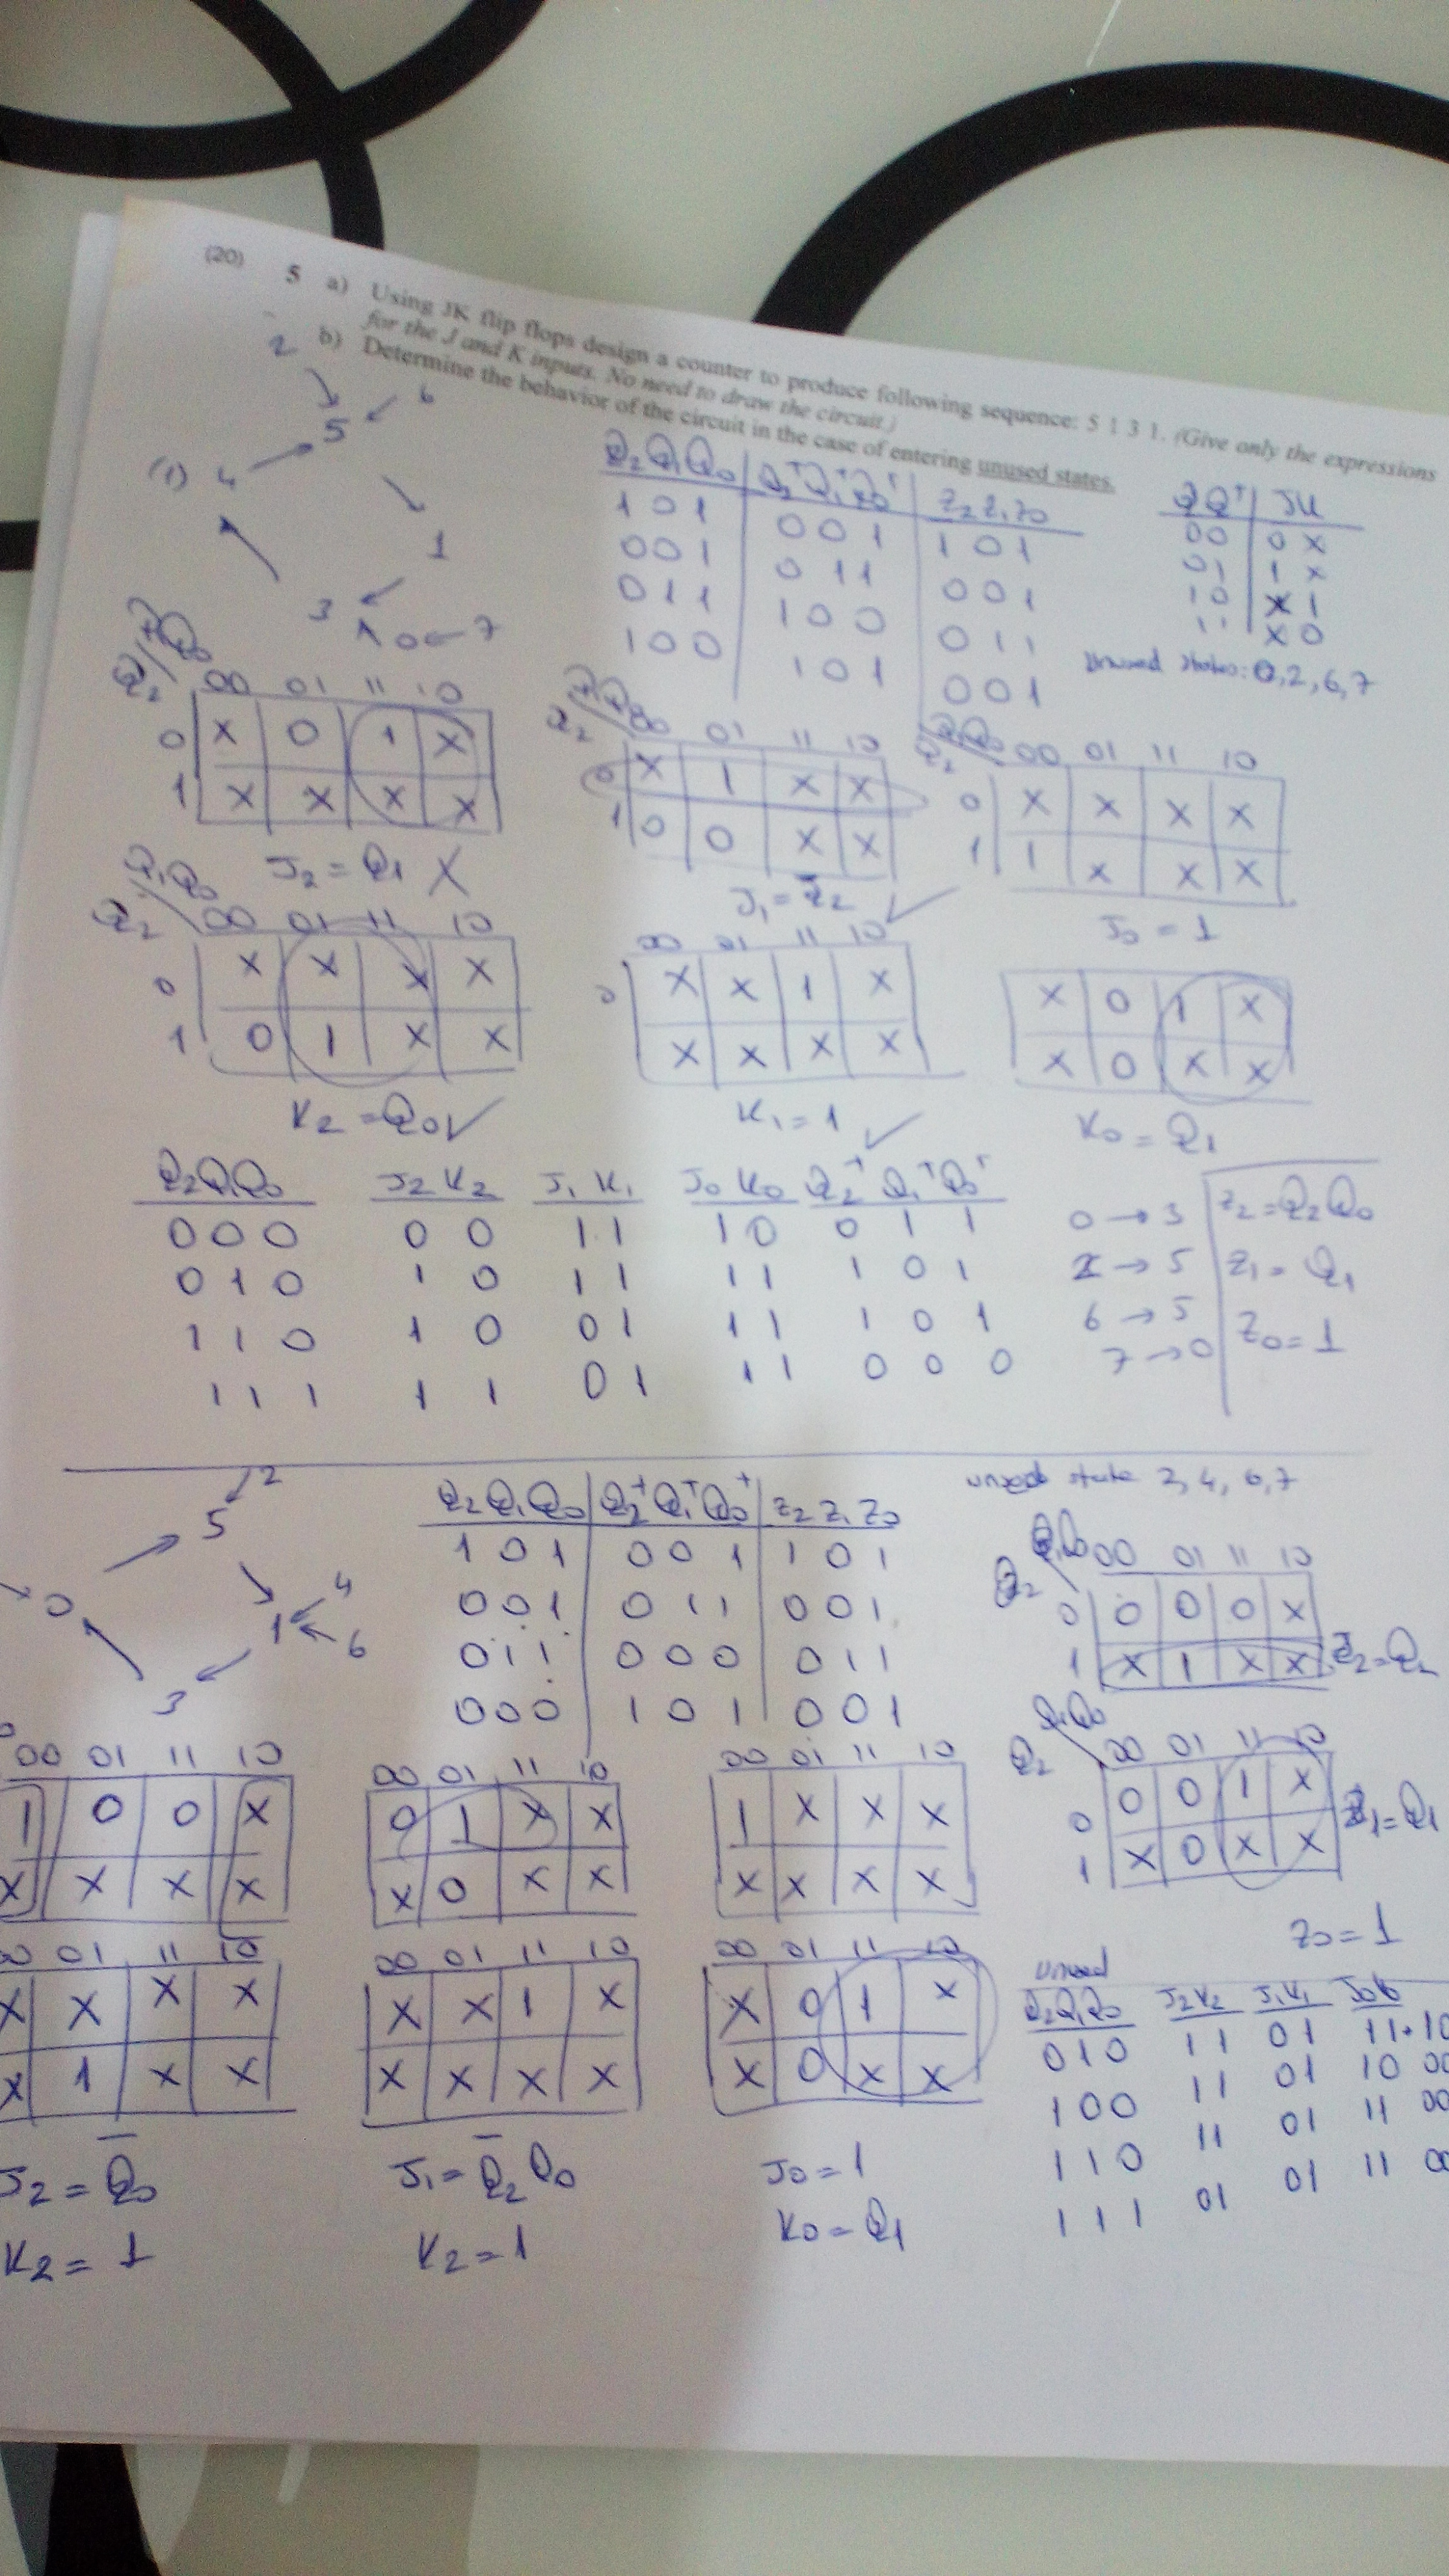 (20) 5 a) Using JK flip flops design a counter to produce following sequence: 5 1 3 1. (Give only the expressions
for the J and K inputs. No need to draw the circuit.)
b) Determine the behavior of the circuit in the case of entering unused states.
2
6
5
(1) 4
1
3
0 ← 7
Q2 Q1 Q0 | Q2⁺ Q1⁺ Q0⁺ | Z2 Z1 Z0
1 0 1 | 0 0 1 | 1 0 1
0 0 1 | 0 1 1 | 0 0 1
0 1 1 | 1 0 0 | 0 1 1
1 0 0 | 1 0 1 | 0 0 1
Q Q⁺ | J K
0 0 | 0 X
0 1 | 1 X
1 0 | X 1
1 1 | X 0
Unused states: 0, 2, 6, 7
Q1Q0
Q2 00 01 11 10
0 X 0 1 X
1 X X X X
J2 = Q1 X
Q1Q0
Q2 00 01 11 10
0 X 1 X X
1 0 0 X X
J1 = Q̅2
Q1Q0
Q2 00 01 11 10
0 X X X X
1 1 X X X
J0 = 1
Q1Q0
Q2 00 01 11 10
0 X X X X
1 0 1 X X
K2 = Q0 ✓
00 01 11 10
0 X X 1 X
X X X X
K1 = 1 ✓
X 0 1 X
X 0 X X
K0 = Q1
Q2Q1Q0 J2 K2 J1 K1 J0 K0 Q2⁺ Q1⁺ Q0⁺
0 0 0 0 0 1 1 1 0 0 1 1 0 → 3
0 1 0 1 0 1 1 1 1 1 0 1 2 → 5
1 1 0 1 0 0 1 1 1 1 0 1 6 → 5
1 1 1 1 1 0 1 1 1 0 0 0 7 → 0
Z2 = Q2 Q0
Z1 = Q1
Z0 = 1
2
5
0
1
4
6
3
Q2 Q1 Q0 | Q2⁺ Q1⁺ Q0⁺ | Z2 Z1 Z0
1 0 1 | 0 0 1 | 1 0 1
0 0 1 | 0 1 1 | 0 0 1
0 1 1 | 0 0 0 | 0 1 1
0 0 0 | 1 0 1 | 0 0 1
unused state 2, 4, 6, 7
Q1Q0 00 01 11 10
Q2
0 0 0 0 X
1 X 1 X X Z2 = Q2
Q1Q0
Q2 00 01 11 10
0 0 0 1 X
1 X 0 X X Z1 = Q1
Z0 = 1
00 01 11 10
1 0 0 X
X X X X
00 01 11 10
0 1 X X
X 0 X X
00 01 11 10
1 X X X
X X X X
00 01 11 10
X X X X
X 1 X X
00 01 11 10
X X 1 X
X X X X
00 01 11 10
X 0 1 X
X 0 X X
J2 = Q̅0
K2 = 1
J1 = Q̅2 Q0
K2 = 1
J0 = 1
K0 = Q1
unused
Q2Q1Q0 J2K2 J1K1 J0K0
0 1 0 11 01 11 10
1 0 0 11 01 10 00
1 1 0 11 01 11 00
1 1 1 01 01 11 00